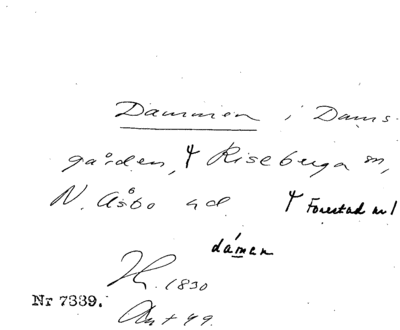 Dammen i Dams-
gården, Riseberga sn,
N. Åsbo hd. Forestad nr 1
dámen
1830
Nr 7339.